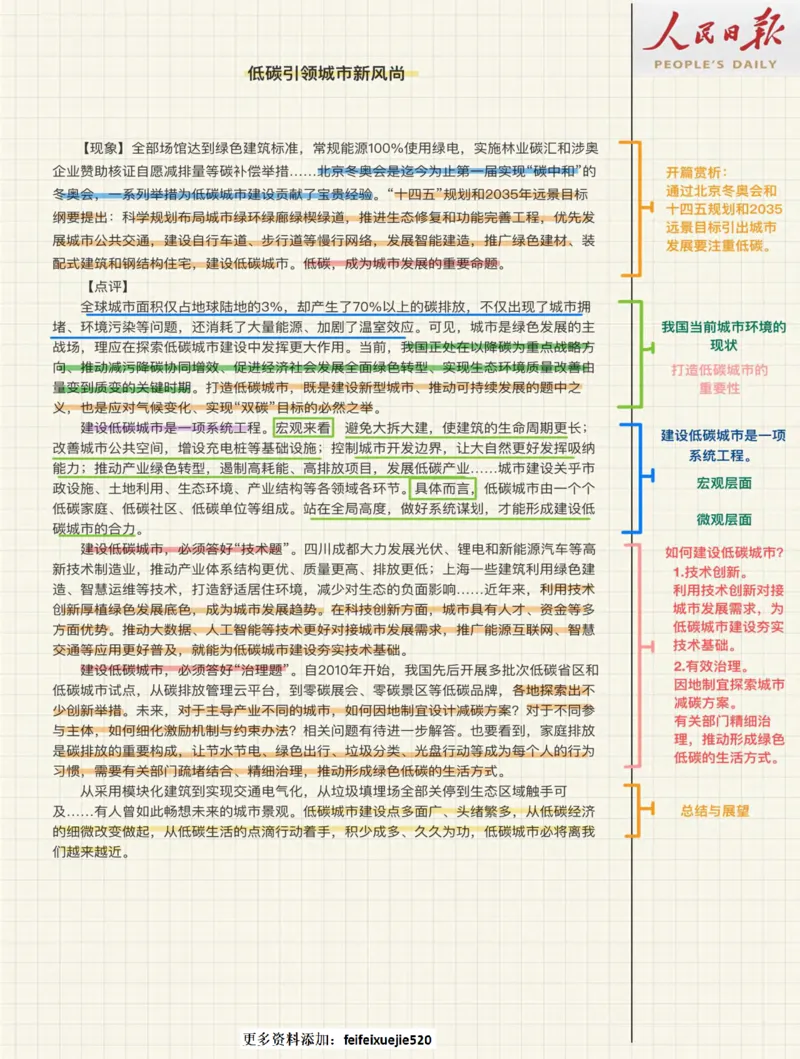 人民日报
PEOPLE'S DAILY
低碳引领城市新风尚
【现象】全部场馆达到绿色建筑标准，常规能源100%使用绿电，实施林业碳汇和涉奥
企业赞助核证自愿减排量等碳补偿举措……北京冬奥会是迄今为止第一届实现“碳中和”的
冬奥会，一系列举措为低碳城市建设贡献了宝贵经验。“十四五”规划和2035年远景目标
纲要提出：科学规划布局城市绿环绿廊绿楔绿道，推进生态修复和功能完善工程，优先发
展城市公共交通，建设自行车道、步行道等慢行网络，发展智能建造，推广绿色建材、装
配式建筑和钢结构住宅，建设低碳城市。低碳，成为城市发展的重要命题。
【点评】
全球城市面积仅占地球陆地的3%，却产生了70%以上的碳排放，不仅出现了城市拥
堵、环境污染等问题，还消耗了大量能源、加剧了温室效应。可见，城市是绿色发展的主
战场，理应在探索低碳城市建设中发挥更大作用。当前，我国正处在以降碳为重点战略方
向、推动减污降碳协同增效、促进经济社会发展全面绿色转型、实现生态环境质量改善由
量变到质变的关键时期。打造低碳城市，既是建设新型城市、推动可持续发展的题中之
义，也是应对气候变化、实现“双碳”目标的必然之举。
建设低碳城市是一项系统工程。宏观来看，避免大拆大建，使建筑的生命周期更长；
改善城市公共空间，增设充电桩等基础设施；控制城市开发边界，让大自然更好发挥吸纳
能力；推动产业绿色转型，遏制高耗能、高排放项目，发展低碳产业……城市建设关乎市
政设施、土地利用、生态环境、产业结构等各领域各环节。具体而言，低碳城市由一个个
低碳家庭、低碳社区、低碳单位等组成。站在全局高度，做好系统谋划，才能形成建设低
碳城市的合力。
建设低碳城市，必须答好“技术题”。四川成都大力发展光伏、锂电和新能源汽车等高
新技术制造业，推动产业体系结构更优、质量更高、排放更低；上海一些建筑利用绿色建
造、智慧运维等技术，打造舒适居住环境，减少对生态的负面影响……近年来，利用技术
创新厚植绿色发展底色，成为城市发展趋势。在科技创新方面，城市具有人才、资金等多
方面优势。推动大数据、人工智能等技术更好对接城市发展需求，推广能源互联网、智慧
交通等应用更好普及，就能为低碳城市建设夯实技术基础。
建设低碳城市，必须答好“治理题”。自2010年开始，我国先后开展多批次低碳省区和
低碳城市试点，从碳排放管理云平台，到零碳展会、零碳景区等低碳品牌，各地探索出不
少创新举措。未来，对于主导产业不同的城市，如何因地制宜设计减碳方案？对于不同参
与主体，如何细化激励机制与约束办法？相关问题有待进一步解答。也要看到，家庭排放
是碳排放的重要构成，让节水节电、绿色出行、垃圾分类、光盘行动等成为每个人的行为
习惯，需要有关部门疏堵结合、精细治理，推动形成绿色低碳的生活方式。
从采用模块化建筑到实现交通电气化，从垃圾填埋场全部关停到生态区域触手可
及……有人曾如此畅想未来的城市景观。低碳城市建设点多面广、头绪繁多，从低碳经济
的细微改变做起，从低碳生活的点滴行动着手，积少成多、久久为功，低碳城市必将离我
们越来越近。
开篇赏析：
通过北京冬奥会和
十四五规划和2035
远景目标引出城市
发展要注重低碳。
我国当前城市环境的
现状
打造低碳城市的
重要性
建设低碳城市是一项
系统工程。
宏观层面
微观层面
如何建设低碳城市？
1.技术创新。
利用技术创新对接
城市发展需求，为
低碳城市建设夯实
技术基础。
2.有效治理。
因地制宜探索城市
减碳方案。
有关部门精细治
理，推动形成绿色
低碳的生活方式。
总结与展望
更多资料添加：feifeixuejie520